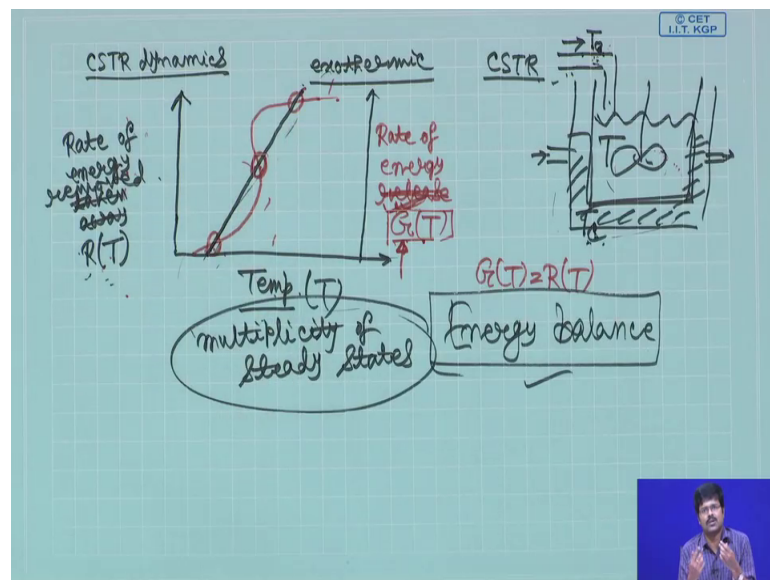 © CET
I.I.T. KGP
CSTR dynamics
exothermic
CSTR
Rate of
energy
removed
taken
away
R(T)
Rate of
energy
release
G(T)
Temp. (T)
T
G(T) = R(T)
multiplicity of
steady states
Energy balance